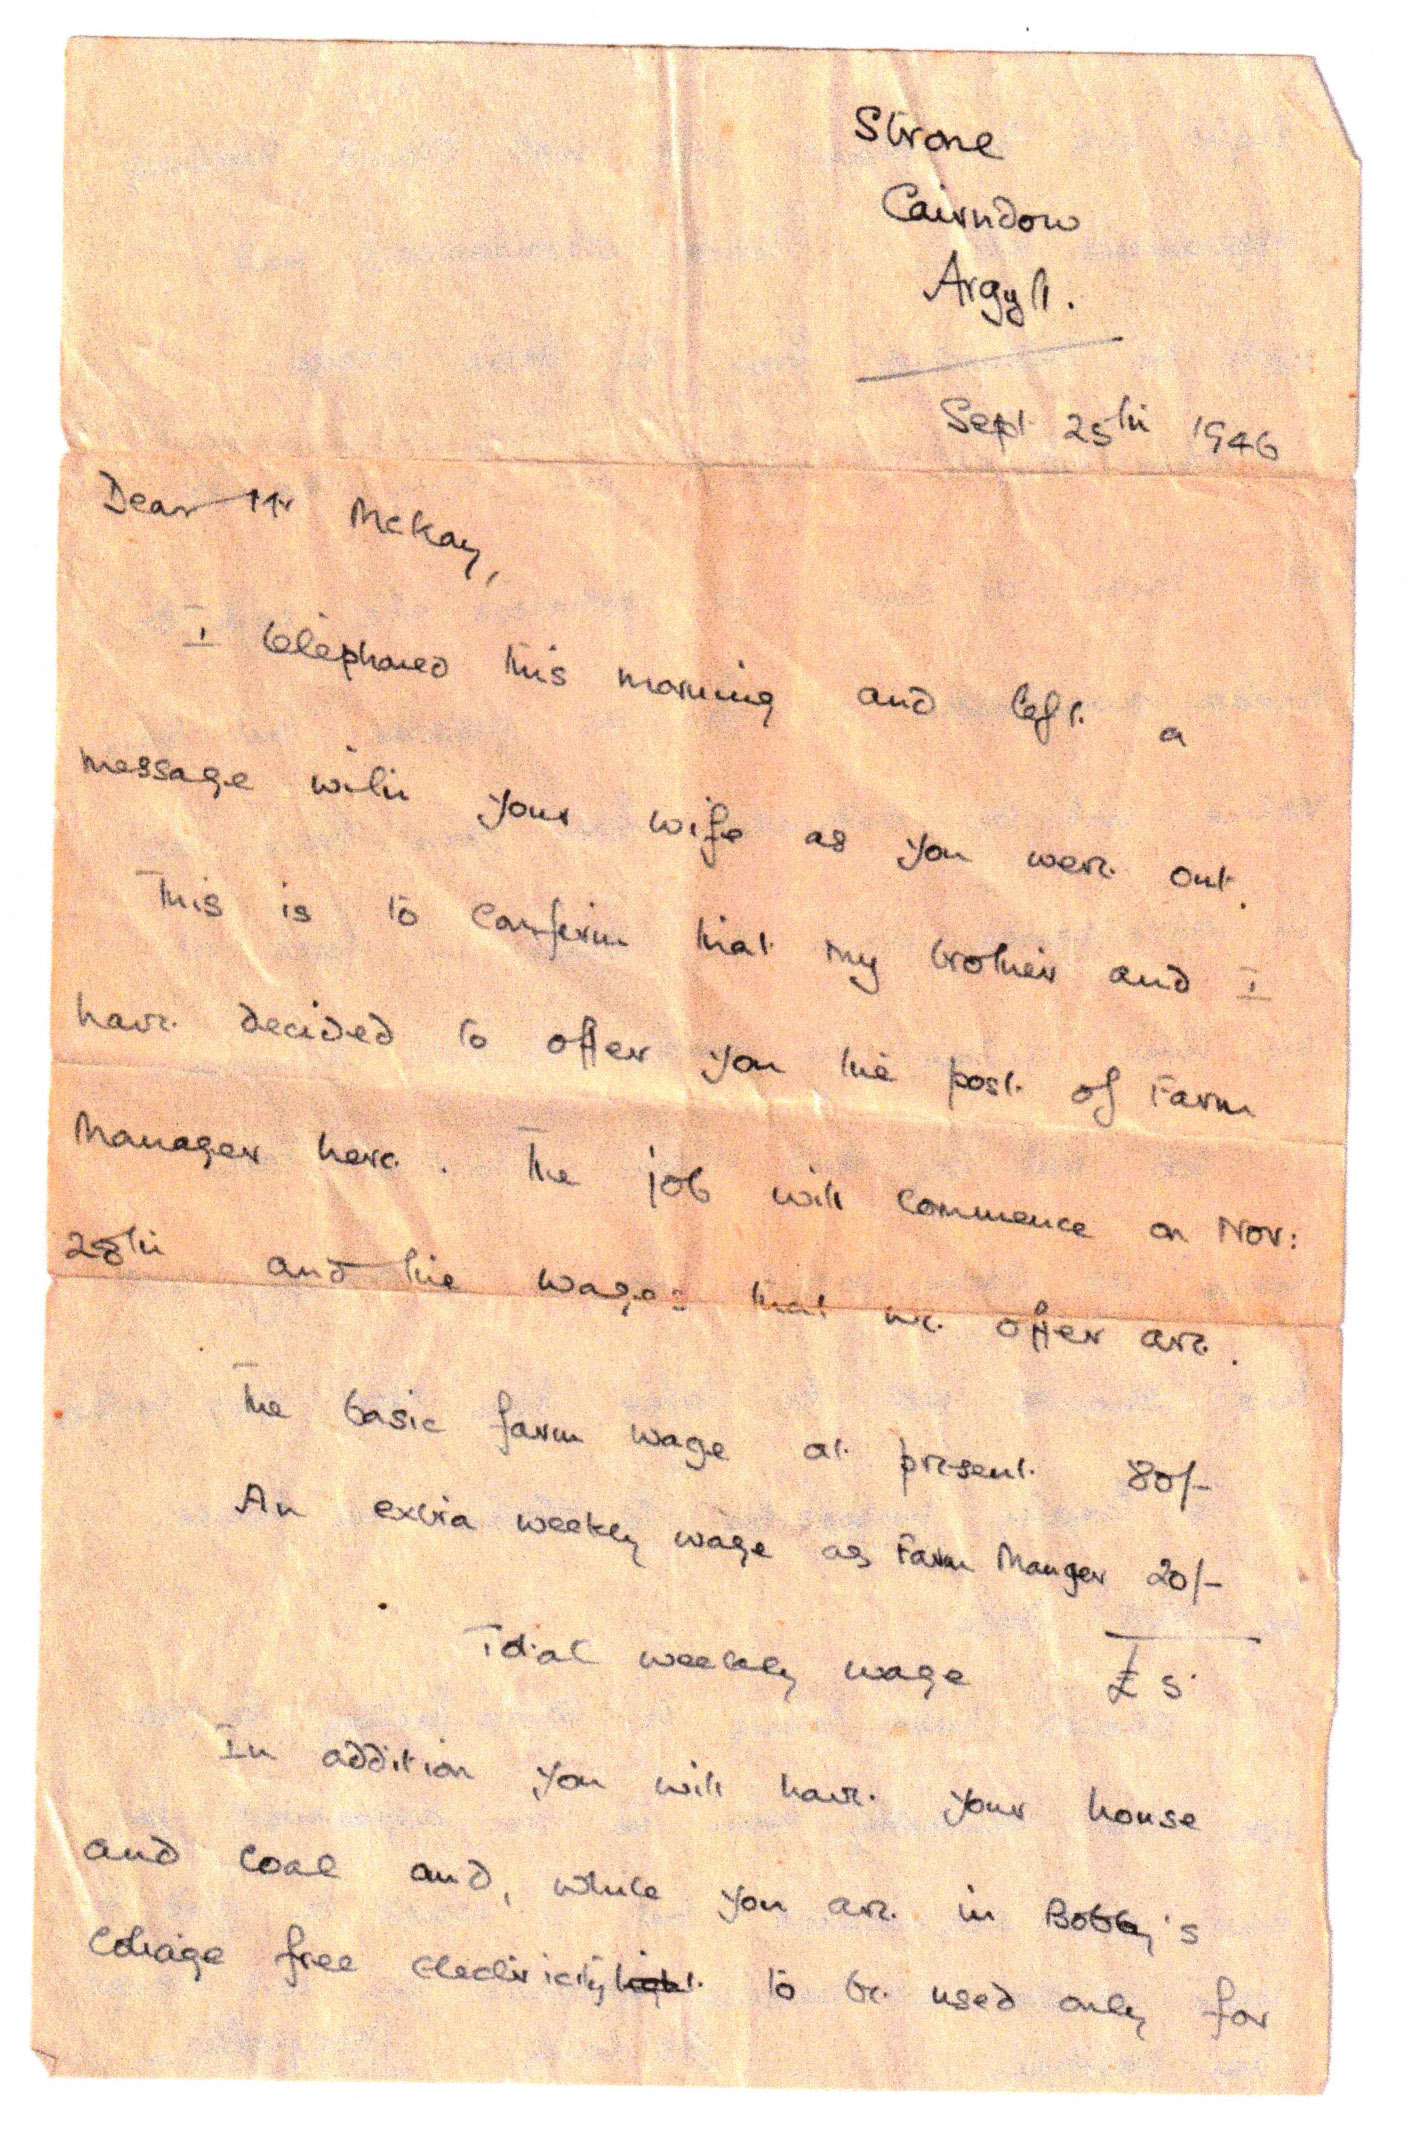 Strone
Cairndow
Argyll.
Sept 25th 1946
Dear Mr McKay,
I telephoned this morning and left a
message with your wife as you were out.
This is to confirm that my brother and I
have decided to offer you the post of Farm
Manager here. The job will commence on Nov:
28th and the wages that we offer are.
The basic farm wage at present 80/-
An extra weekly wage as Farm Manger 20/-
Total weekly wage £5
In addition you will have your house
and coal and, while you are in Bobby's
Cottage free electricity light to be used only for